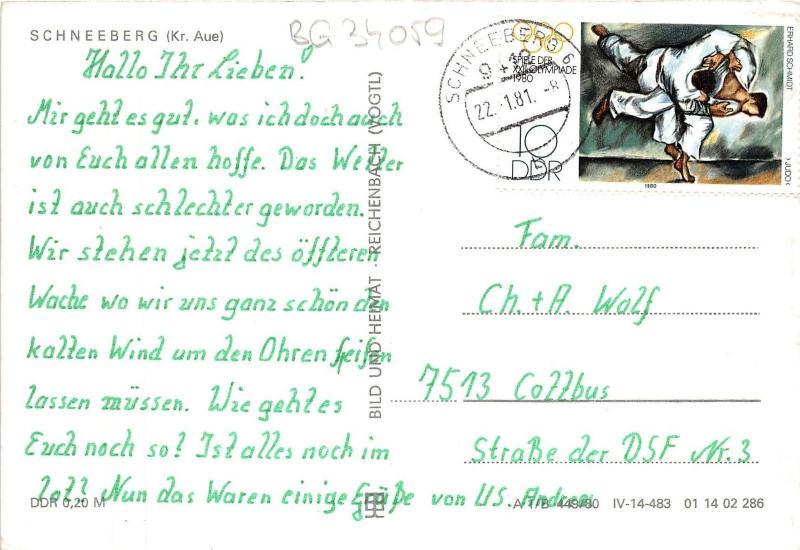 SCHNEEBERG (Kr. Aue)
BG 34059
Hallo Ihr Lieben!
Mir geht es gut, was ich doch auch
von Euch allen hoffe. Das Wetter
ist auch schlechter geworden.
Wir stehen jetzt des öffteren
Wache wo wir uns ganz schön den
kalten Wind um den Ohren pfeifen
lassen müssen. Wie geht es
Euch noch so? Ist alles noch im
lot? Nun das Waren einige Grüße von US. Andreas
DDR 0,20 M
BILD UND HEIMAT REICHENBACH (VOGTL)
SCHNEEBERG 6
9412
22.-1.81.-8
SPIELE DER
XXII. OLYMPIADE
1980
10
DDR
ERHARD SCHMIDT
›JUDO‹
1980
Fam.
Ch. + A. Wolf
7513 Cottbus
Straße der DSF Nr. 3
A 1/B 449/80 IV-14-483 01 14 02 286